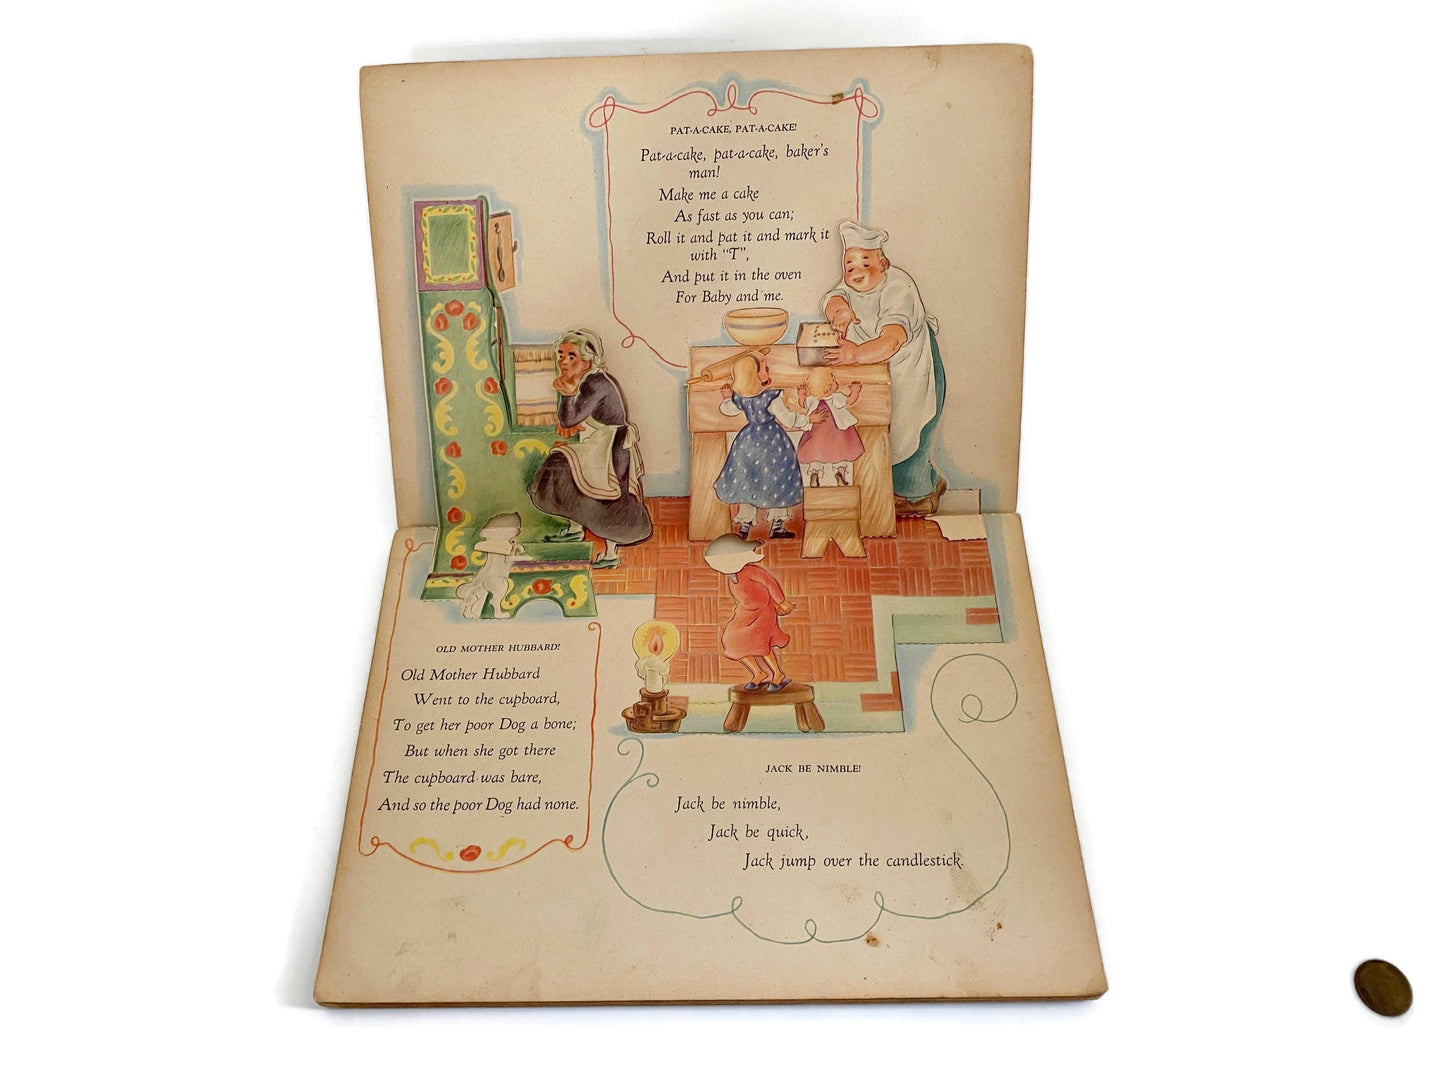 PAT-A-CAKE, PAT-A-CAKE!
Pat-a-cake, pat-a-cake, baker's
man!
Make me a cake
As fast as you can;
Roll it and pat it and mark it
with "T",
And put it in the oven
For Baby and me.
OLD MOTHER HUBBARD!
Old Mother Hubbard
Went to the cupboard,
To get her poor Dog a bone;
But when she got there
The cupboard was bare,
And so the poor Dog had none.
JACK BE NIMBLE!
Jack be nimble,
Jack be quick,
Jack jump over the candlestick.